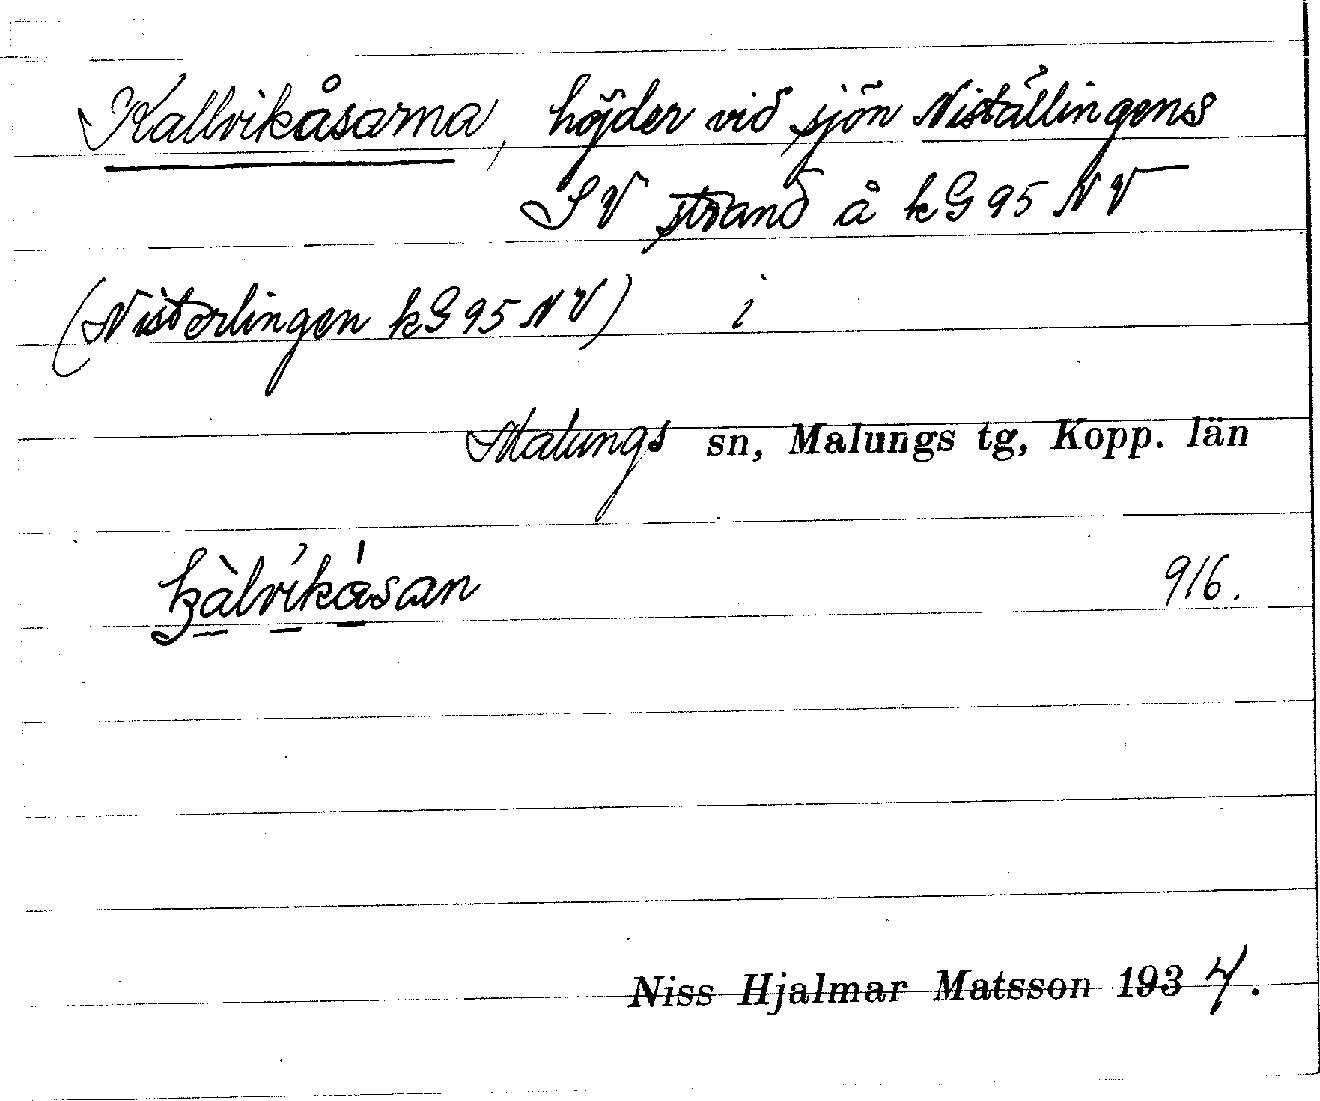 Kallvikåsarna, höjder vid sjön Niställingens
SV strand å kG95NV
(Nisterlingen kG95NV) i
Malungs sn, Malungs tg, Kopp. län
916.
Niss Hjalmar Matsson 1934.